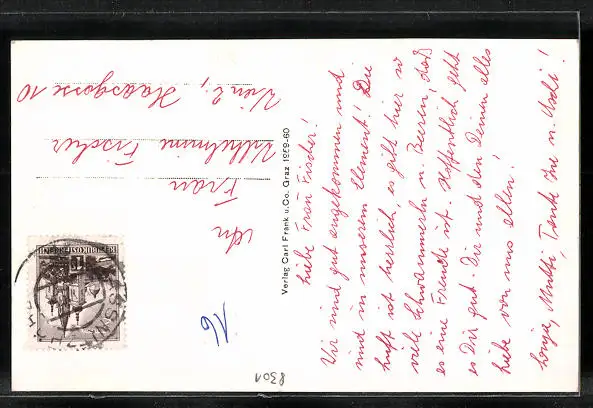 Liebe Frau Fischer!
Wir sind gut angekommen und
sind in unserem Element! Die
Luft ist herrlich, es gibt hier so
viele Schwammerln u. Beeren, daß
es eine Freude ist. Hoffentlich geht
es Dir gut. Dir und den Deinen alles
liebe von uns allen!
Mutti, Tante u. Uschi!
Verlag Carl Frank u. Co. Graz 1959-60
An
Frau
Wilhelmine Fischer
Wien 2., Haasgasse 10
REPUBLIK ÖSTERREICH
8301